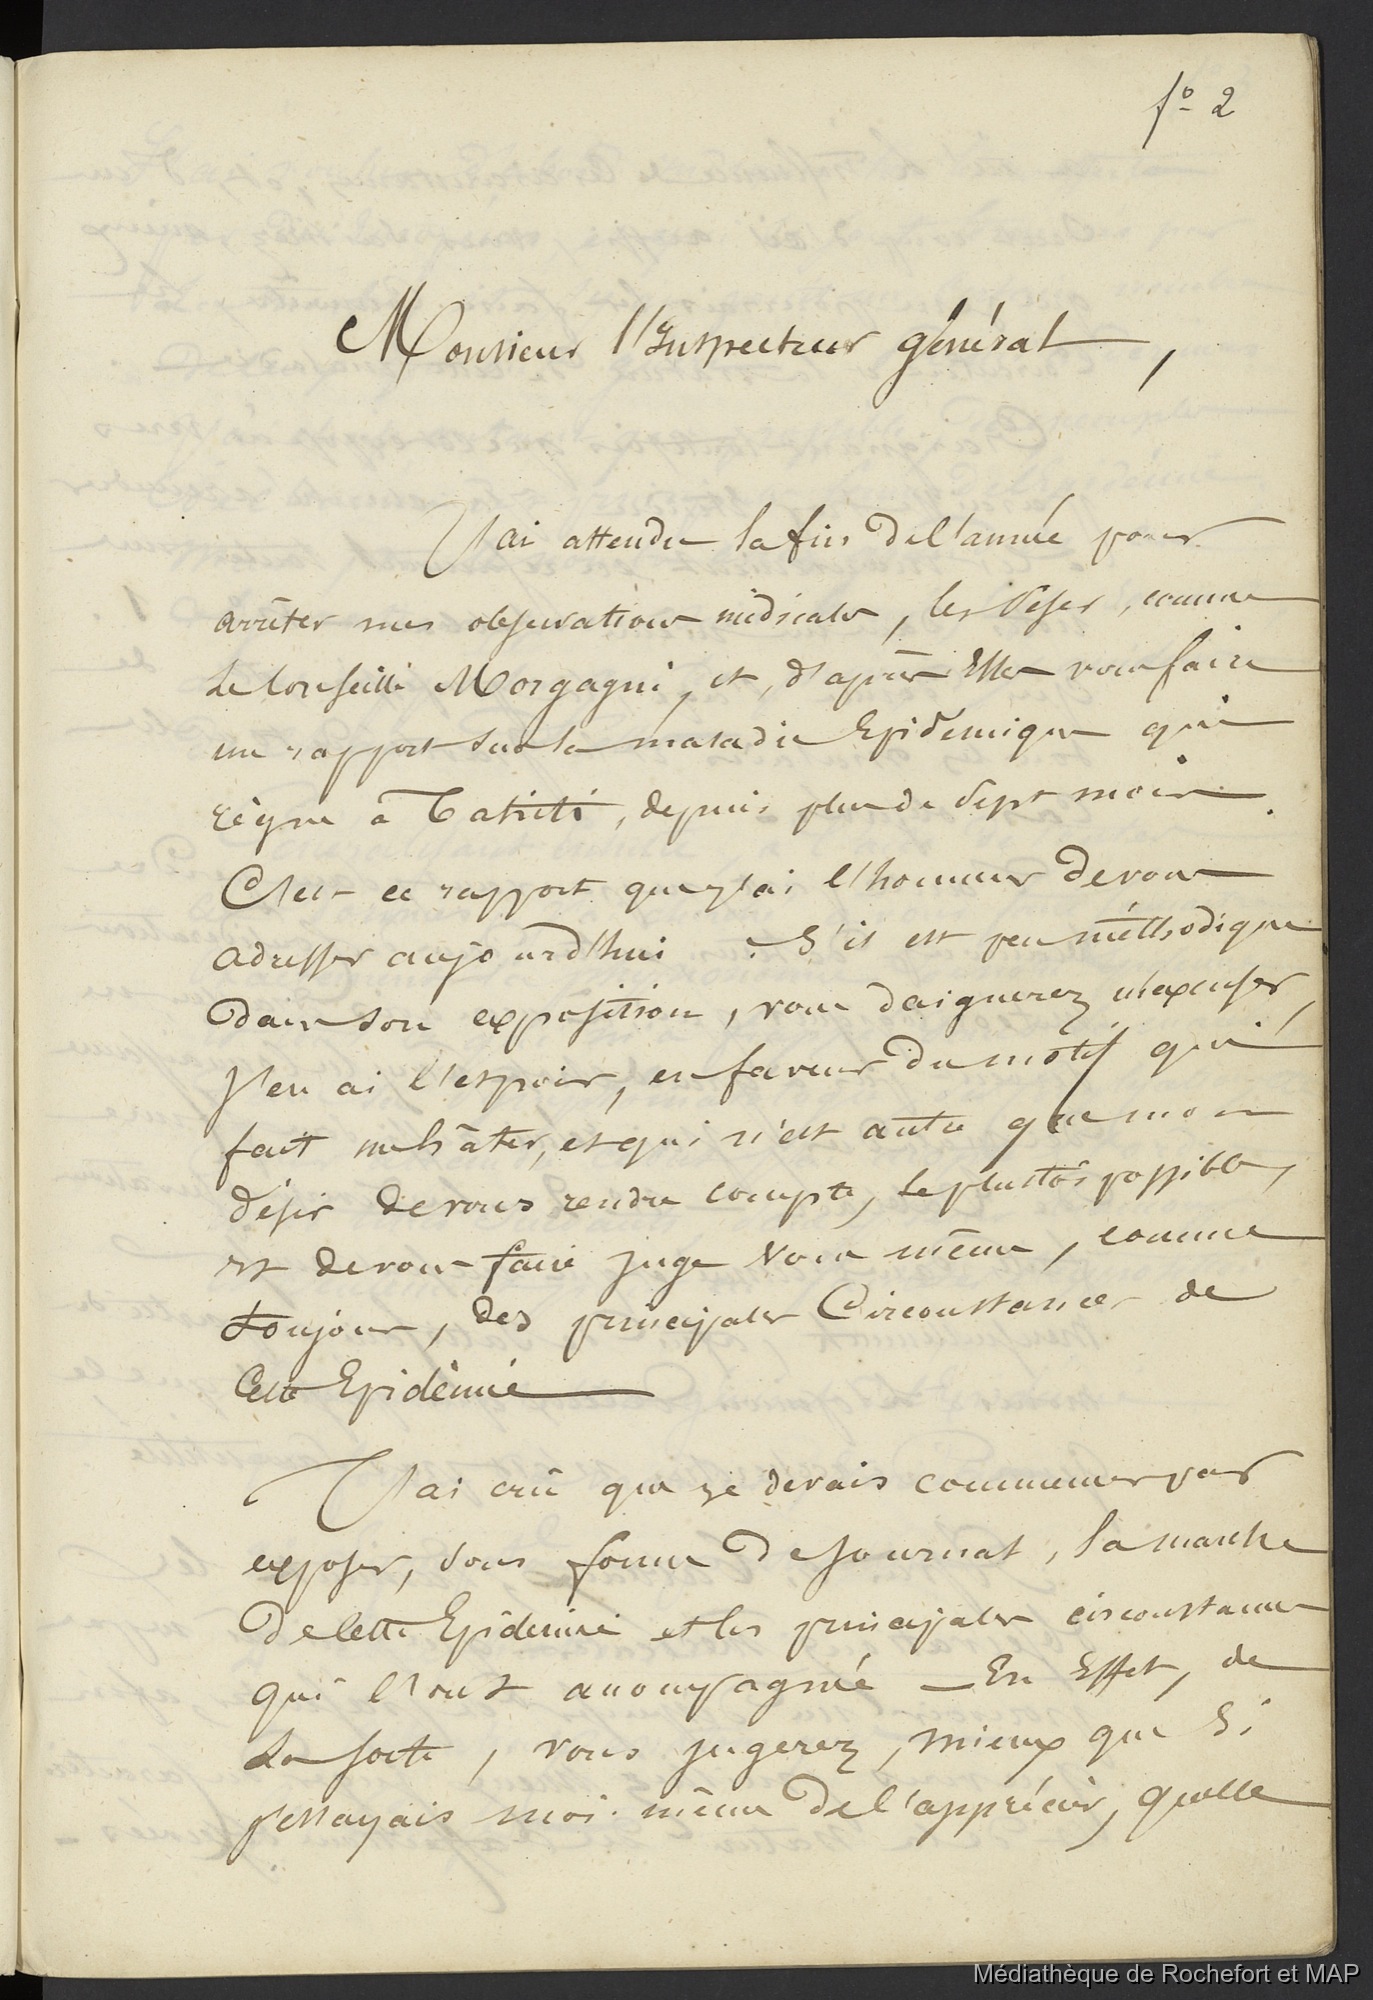 fo 2
Monsieur l'Inspecteur général,
J'ai attendu la fin de l'année pour
arrêter mes observations médicales, les peser, comme
le conseille Morgagni, et, d'après Elles vous faire
un rapport sur la maladie Epidémique qui
règne à Tahiti, depuis plus de sept mois.
C'est ce rapport que j'ai l'honneur de vous
adresser aujourd'hui. S'il est peu méthodique
dans son exposition, vous daignerez m'excuser,
j'en ai l'espoir, en faveur du motif qui
fait me hâter, et qui n'est autre que mon
désir de vous rendre compte, le plustôt possible,
et de vous faire juge vous même, comme
toujours, des principales Circonstances de
Cette Epidémie
J'ai crû que je devais commencer par
exposer, sous forme de journal, la marche
de cette Epidémie et les principales circonstances
qui l'ont accompagnée — En Effet, de
la sorte, vous jugerez, mieux que si
j'essayais moi-même de l'apprécier, quelle
Médiathèque de Rochefort et MAP